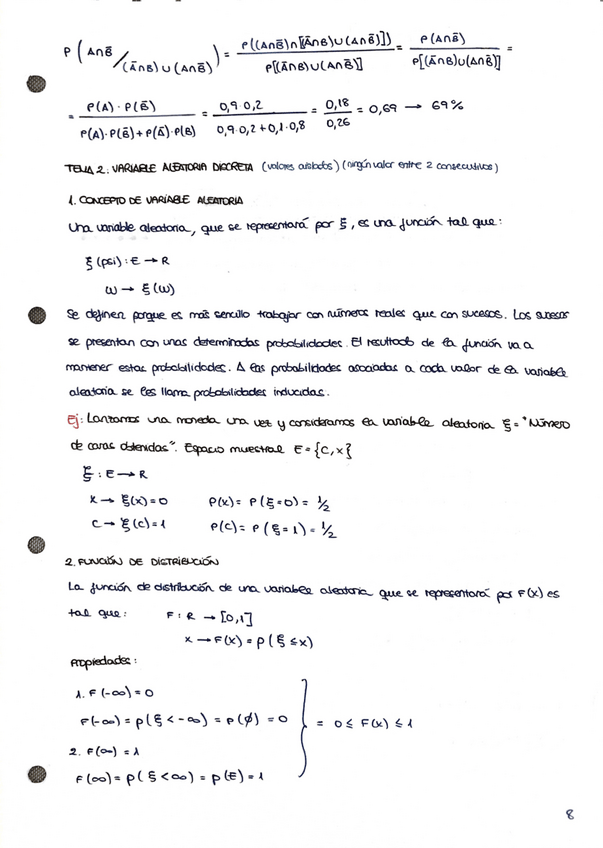 P ( A∩B̄ / (Ā∩B)∪(A∩B̄) ) = P((A∩B̄)∩[(Ā∩B)∪(A∩B̄)]) / P[(Ā∩B)∪(A∩B̄)] = P(A∩B̄) / P[(Ā∩B)∪(A∩B̄)] =
= P(A)·P(B̄) / P(A)·P(B̄)+P(Ā)·P(B) = 0,9·0,2 / 0,9·0,2+0,1·0,8 = 0,18 / 0,26 = 0,69 → 69%
TEMA 2: VARIABLE ALEATORIA DISCRETA (valores aislados) (ningún valor entre 2 consecutivos)
1. CONCEPTO DE VARIABLE ALEATORIA
Una variable aleatoria, que se representará por ξ, es una función tal que:
ξ (psi) : E → R
ω → ξ(ω)
Se definen porque es más sencillo trabajar con números reales que con sucesos. Los sucesos
se presentan con unas determinadas probabilidades. El resultado de la función va a
mantener estas probabilidades. A las probabilidades asociadas a cada valor de la variable
aleatoria se les llama probabilidades inducidas.
Ej: Lanzamos una moneda una vez y consideramos la variable aleatoria ξ = "Número
de caras obtenidas". Espacio muestral E = {C, x}
ξ : E → R
x → ξ(x) = 0 P(x) = P(ξ=0) = 1/2
C → ξ(C) = 1 P(C) = P(ξ=1) = 1/2
2. FUNCIÓN DE DISTRIBUCIÓN
La función de distribución de una variable aleatoria que se representará por F(x) es
tal que: F : R → [0,1]
x → F(x) = p(ξ ≤ x)
Propiedades:
1. F(-∞) = 0
F(-∞) = p(ξ < -∞) = p(∅) = 0
= 0 ≤ F(x) ≤ 1
2. F(∞) = 1
F(∞) = p(ξ < ∞) = p(E) = 1
8